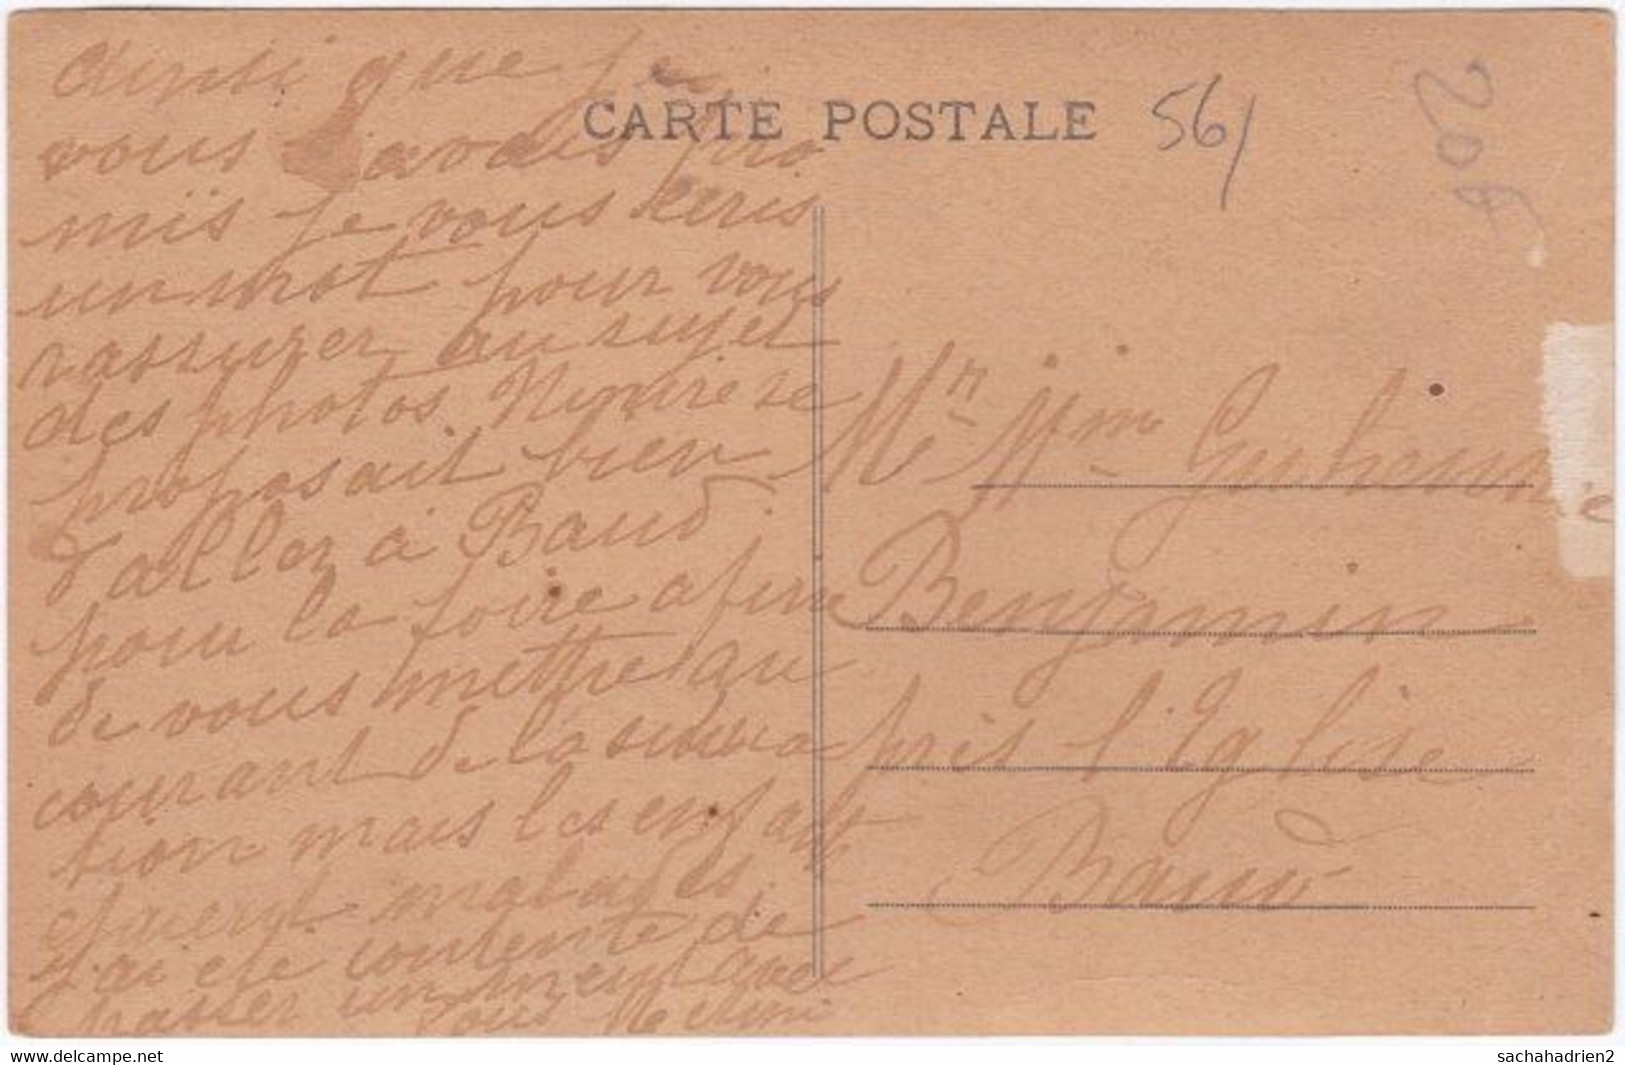 Ainsi que je
vous l'avais pro
mis je vous écris
un mot pour vous
rassurer au sujet
des photos. se
proposait bien
d'aller à Baud
pour la foire afin
de vous mettre au
courant de la situa
tion mais les enfants
étaient malades.
J'ai été contente de
passer un avec
vous
CARTE POSTALE
56/
20f
Mr Mme
Benjamin
près l'Eglise
Baud
delcampe.net
sachahadrien2